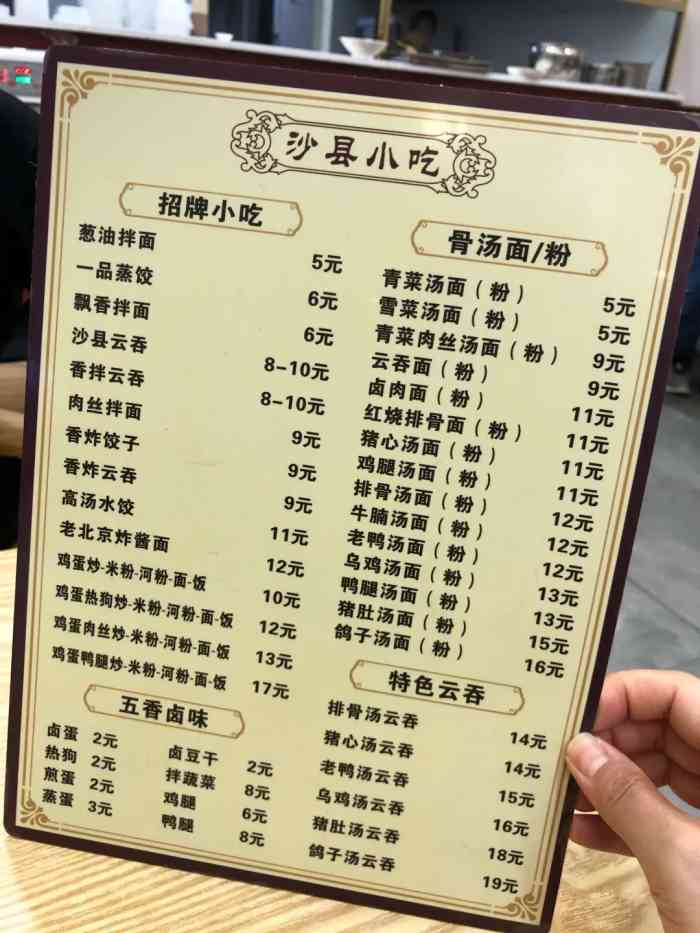 沙县小吃
招牌小吃
葱油拌面 5元
一品蒸饺 6元
飘香拌面 6元
沙县云吞 8-10元
香拌云吞 8-10元
肉丝拌面 9元
香炸饺子 9元
香炸云吞 9元
高汤水饺 11元
老北京炸酱面 12元
鸡蛋炒-米粉-河粉-面-饭 10元
鸡蛋热狗炒-米粉-河粉-面-饭 12元
鸡蛋肉丝炒-米粉-河粉-面-饭 13元
鸡蛋鸭腿炒-米粉-河粉-面-饭 17元
五香卤味
卤蛋 2元 卤豆干 2元
热狗 2元 拌蔬菜 8元
煎蛋 2元 鸡腿 6元
蒸蛋 3元 鸭腿 8元
骨汤面/粉
青菜汤面（粉） 5元
雪菜汤面（粉） 5元
青菜肉丝汤面（粉） 9元
云吞面（粉） 9元
卤肉面（粉） 11元
红烧排骨面（粉） 11元
猪心汤面（粉） 11元
鸡腿汤面（粉） 11元
排骨汤面（粉） 12元
牛腩汤面（粉） 12元
老鸭汤面（粉） 12元
乌鸡汤面（粉） 13元
鸭腿汤面（粉） 13元
猪肚汤面（粉） 15元
鸽子汤面（粉） 16元
特色云吞
排骨汤云吞 14元
猪心汤云吞 14元
老鸭汤云吞 15元
乌鸡汤云吞 16元
猪肚汤云吞 18元
鸽子汤云吞 19元